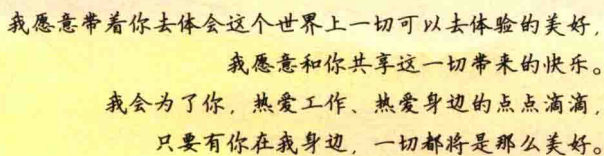 我愿意带着你去体会这个世界上一切可以去体验的美好，
我愿意和你共享这一切带来的快乐。
我会为了你，热爱工作、热爱身边的点点滴滴，
只要有你在我身边，一切都将是那么美好。